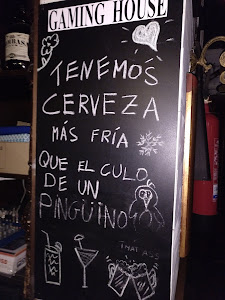 GAMING HOUSE
TENEMOS
CERVEZA
MÁS FRÍA
QUE EL CULO
DE UN
PINGÜINO
THAT ASS